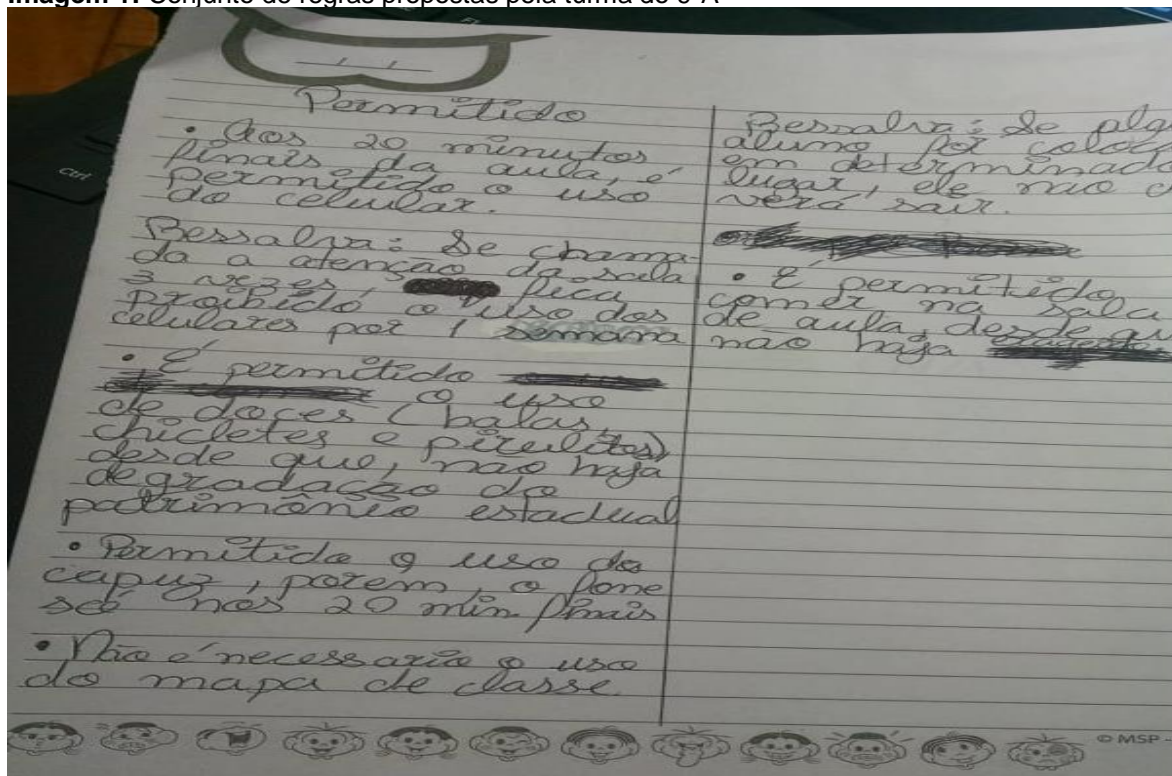 Permitido
• Aos 20 minutos
finais da aula, é
permitido o uso
do celular.
Ressalva: Se chama-
da a atenção da sala
3 vezes, fica
proibido o uso dos
celulares por 1 semana
• É permitido
o uso
de doces (balas,
chicletes e pirulitos)
desde que, não haja
degradação do
patrimônio estadual
• Permitido o uso do
capuz, porem, o fone
só nos 20 min finais
• Não é necessario o uso
do mapa de classe.
Ressalva: Se alg
aluno for coloc
em determinado
lugar, ele não
verá sair.
• É permitido
comer na sala
de aula, desde
não haja
© MSP -
Ctrl